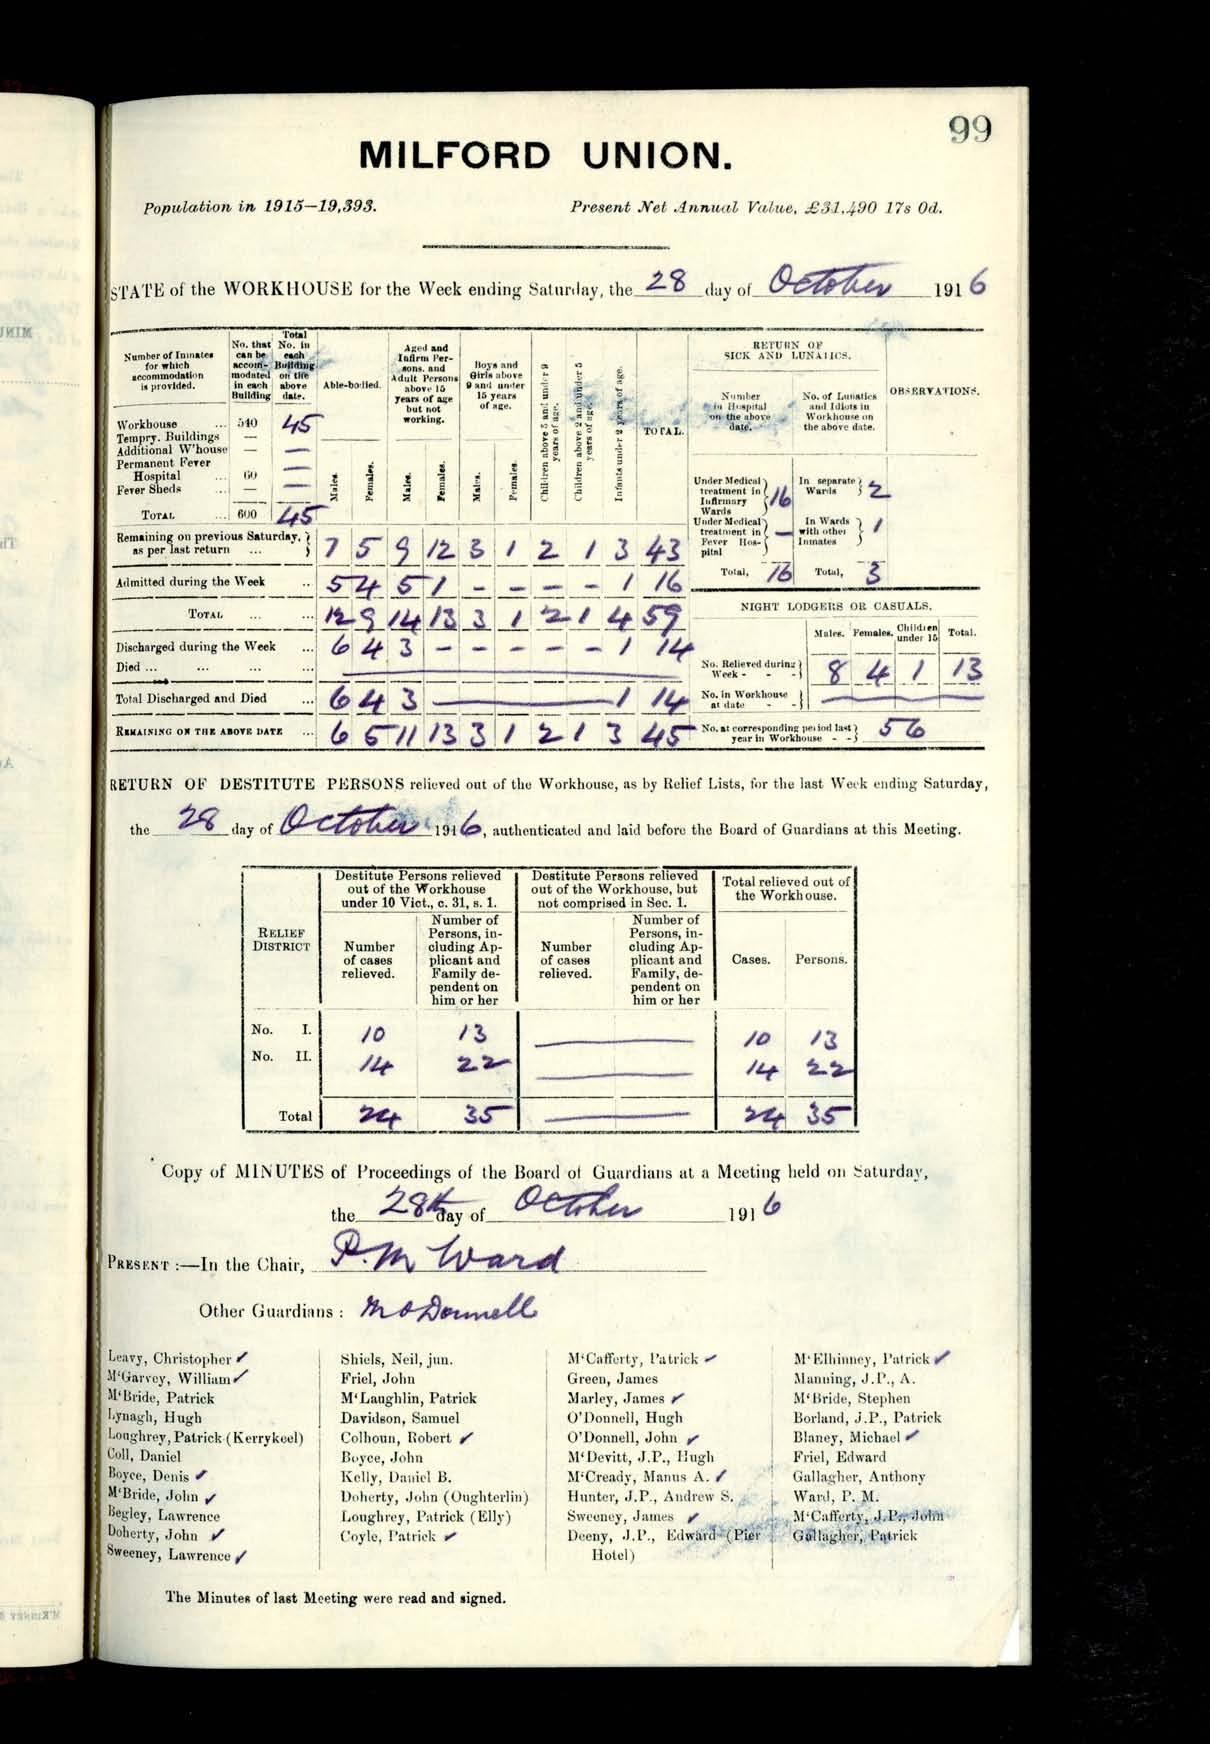 99
MILFORD UNION.
Population in 1915—19,393. Present Net Annual Value, £31,490 17s 0d.
STATE of the WORKHOUSE for the Week ending Saturday, the 28 day of October 1916
Number of Inmates for which accommodation is provided. | No. that can be accommodated in each Building | Total No. in each Building on the above date. | Able-bodied. | Aged and Infirm Persons, and Adult Persons above 15 years of age but not working. | Boys and Girls above 9 and under 15 years of age. | Children above 5 and under 9 years of age. | Children above 2 and under 5 years of age. | Infants under 2 years of age. | TOTAL. | RETURN OF SICK AND LUNATICS. | OBSERVATIONS.
Males. Females. Males. Females. Males. Females.
Number in Hospital on the above date. | No. of Lunatics and Idiots in Workhouse on the above date.
Workhouse ... 540 45
Tempry. Buildings — —
Additional W'house — —
Permanent Fever
Hospital ... 60 —
Fever Sheds ... — —
TOTAL ... 600 45
Under Medical treatment in Infirmary Wards 16 In separate Wards 2
Under Medical treatment in Fever Hospital — In Wards with other Inmates 1
Total, 16 Total, 3
Remaining on previous Saturday, as per last return ... 7 5 9 12 3 1 2 1 3 43
Admitted during the Week ... 5 4 5 1 - - - - 1 16
TOTAL ... ... 12 9 14 13 3 1 2 1 4 59
Discharged during the Week ... 6 4 3 - - - - - 1 14
Died ... ... ... ... —
Total Discharged and Died ... 6 4 3 — 1 14
REMAINING ON THE ABOVE DATE ... 6 5 11 13 3 1 2 1 3 45
NIGHT LODGERS OR CASUALS.
Males. Females. Children under 15 Total.
No. Relieved during Week - - - 8 4 1 13
No. in Workhouse at date - - —
No. at corresponding period last year in Workhouse - - 56
RETURN OF DESTITUTE PERSONS relieved out of the Workhouse, as by Relief Lists, for the last Week ending Saturday,
the 28 day of October 1916, authenticated and laid before the Board of Guardians at this Meeting.
RELIEF DISTRICT | Destitute Persons relieved out of the Workhouse under 10 Vict., c. 31, s. 1. | Destitute Persons relieved out of the Workhouse, but not comprised in Sec. 1. | Total relieved out of the Workhouse.
Number of cases relieved. | Number of Persons, including Applicant and Family dependent on him or her | Number of cases relieved. | Number of Persons, including Applicant and Family, dependent on him or her | Cases. | Persons.
No. I. 10 13 — 10 13
No. II. 14 22 — 14 22
Total 24 35 — 24 35
Copy of MINUTES of Proceedings of the Board of Guardians at a Meeting held on Saturday,
the 28th day of October 1916
PRESENT :—In the Chair, P. M Ward
Other Guardians : McDonnell
Leavy, Christopher ✓
M'Garvey, William ✓
M'Bride, Patrick
Lynagh, Hugh
Loughrey, Patrick (Kerrykeel)
Coll, Daniel
Boyce, Denis ✓
M'Bride, John ✓
Begley, Lawrence
Doherty, John ✓
Sweeney, Lawrence ✓
Shiels, Neil, jun.
Friel, John
M'Laughlin, Patrick
Davidson, Samuel
Colhoun, Robert ✓
Boyce, John
Kelly, Daniel B.
Doherty, John (Oughterlin)
Loughrey, Patrick (Elly)
Coyle, Patrick ✓
M'Cafferty, Patrick ✓
Green, James
Marley, James ✓
O'Donnell, Hugh
O'Donnell, John ✓
M'Devitt, J.P., Hugh
M'Cready, Manus A. ✓
Hunter, J.P., Andrew S.
Sweeney, James ✓
Deeny, J.P., Edward (Pier
Hotel)
M'Elhinney, Patrick ✓
Manning, J.P., A.
M'Bride, Stephen
Borland, J.P., Patrick
Blaney, Michael ✓
Friel, Edward
Gallagher, Anthony
Ward, P. M.
M'Cafferty, J.P., John
Gallagher, Patrick
The Minutes of last Meeting were read and signed.